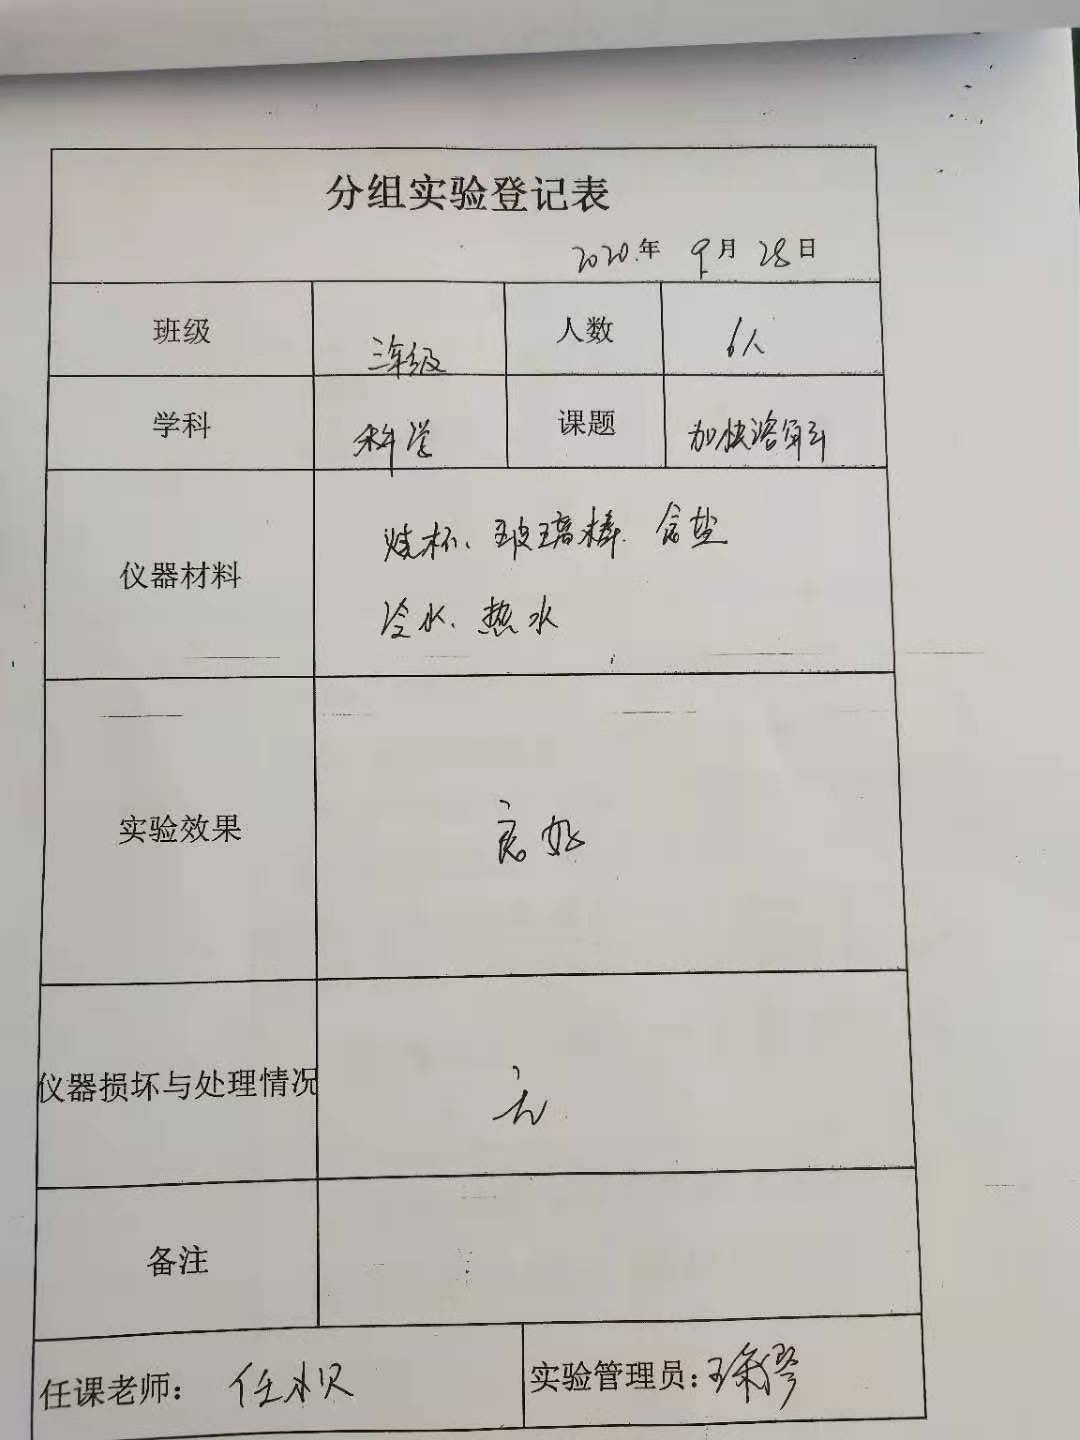 分组实验登记表
2020.年 9月 28日
班级 三年级 人数 6人
学科 科学 课题 加快溶解
仪器材料 烧杯、玻璃棒. 食盐
冷水、热水
实验效果 良好
仪器损坏与处理情况 无
备注
任课老师： 任 实验管理员：